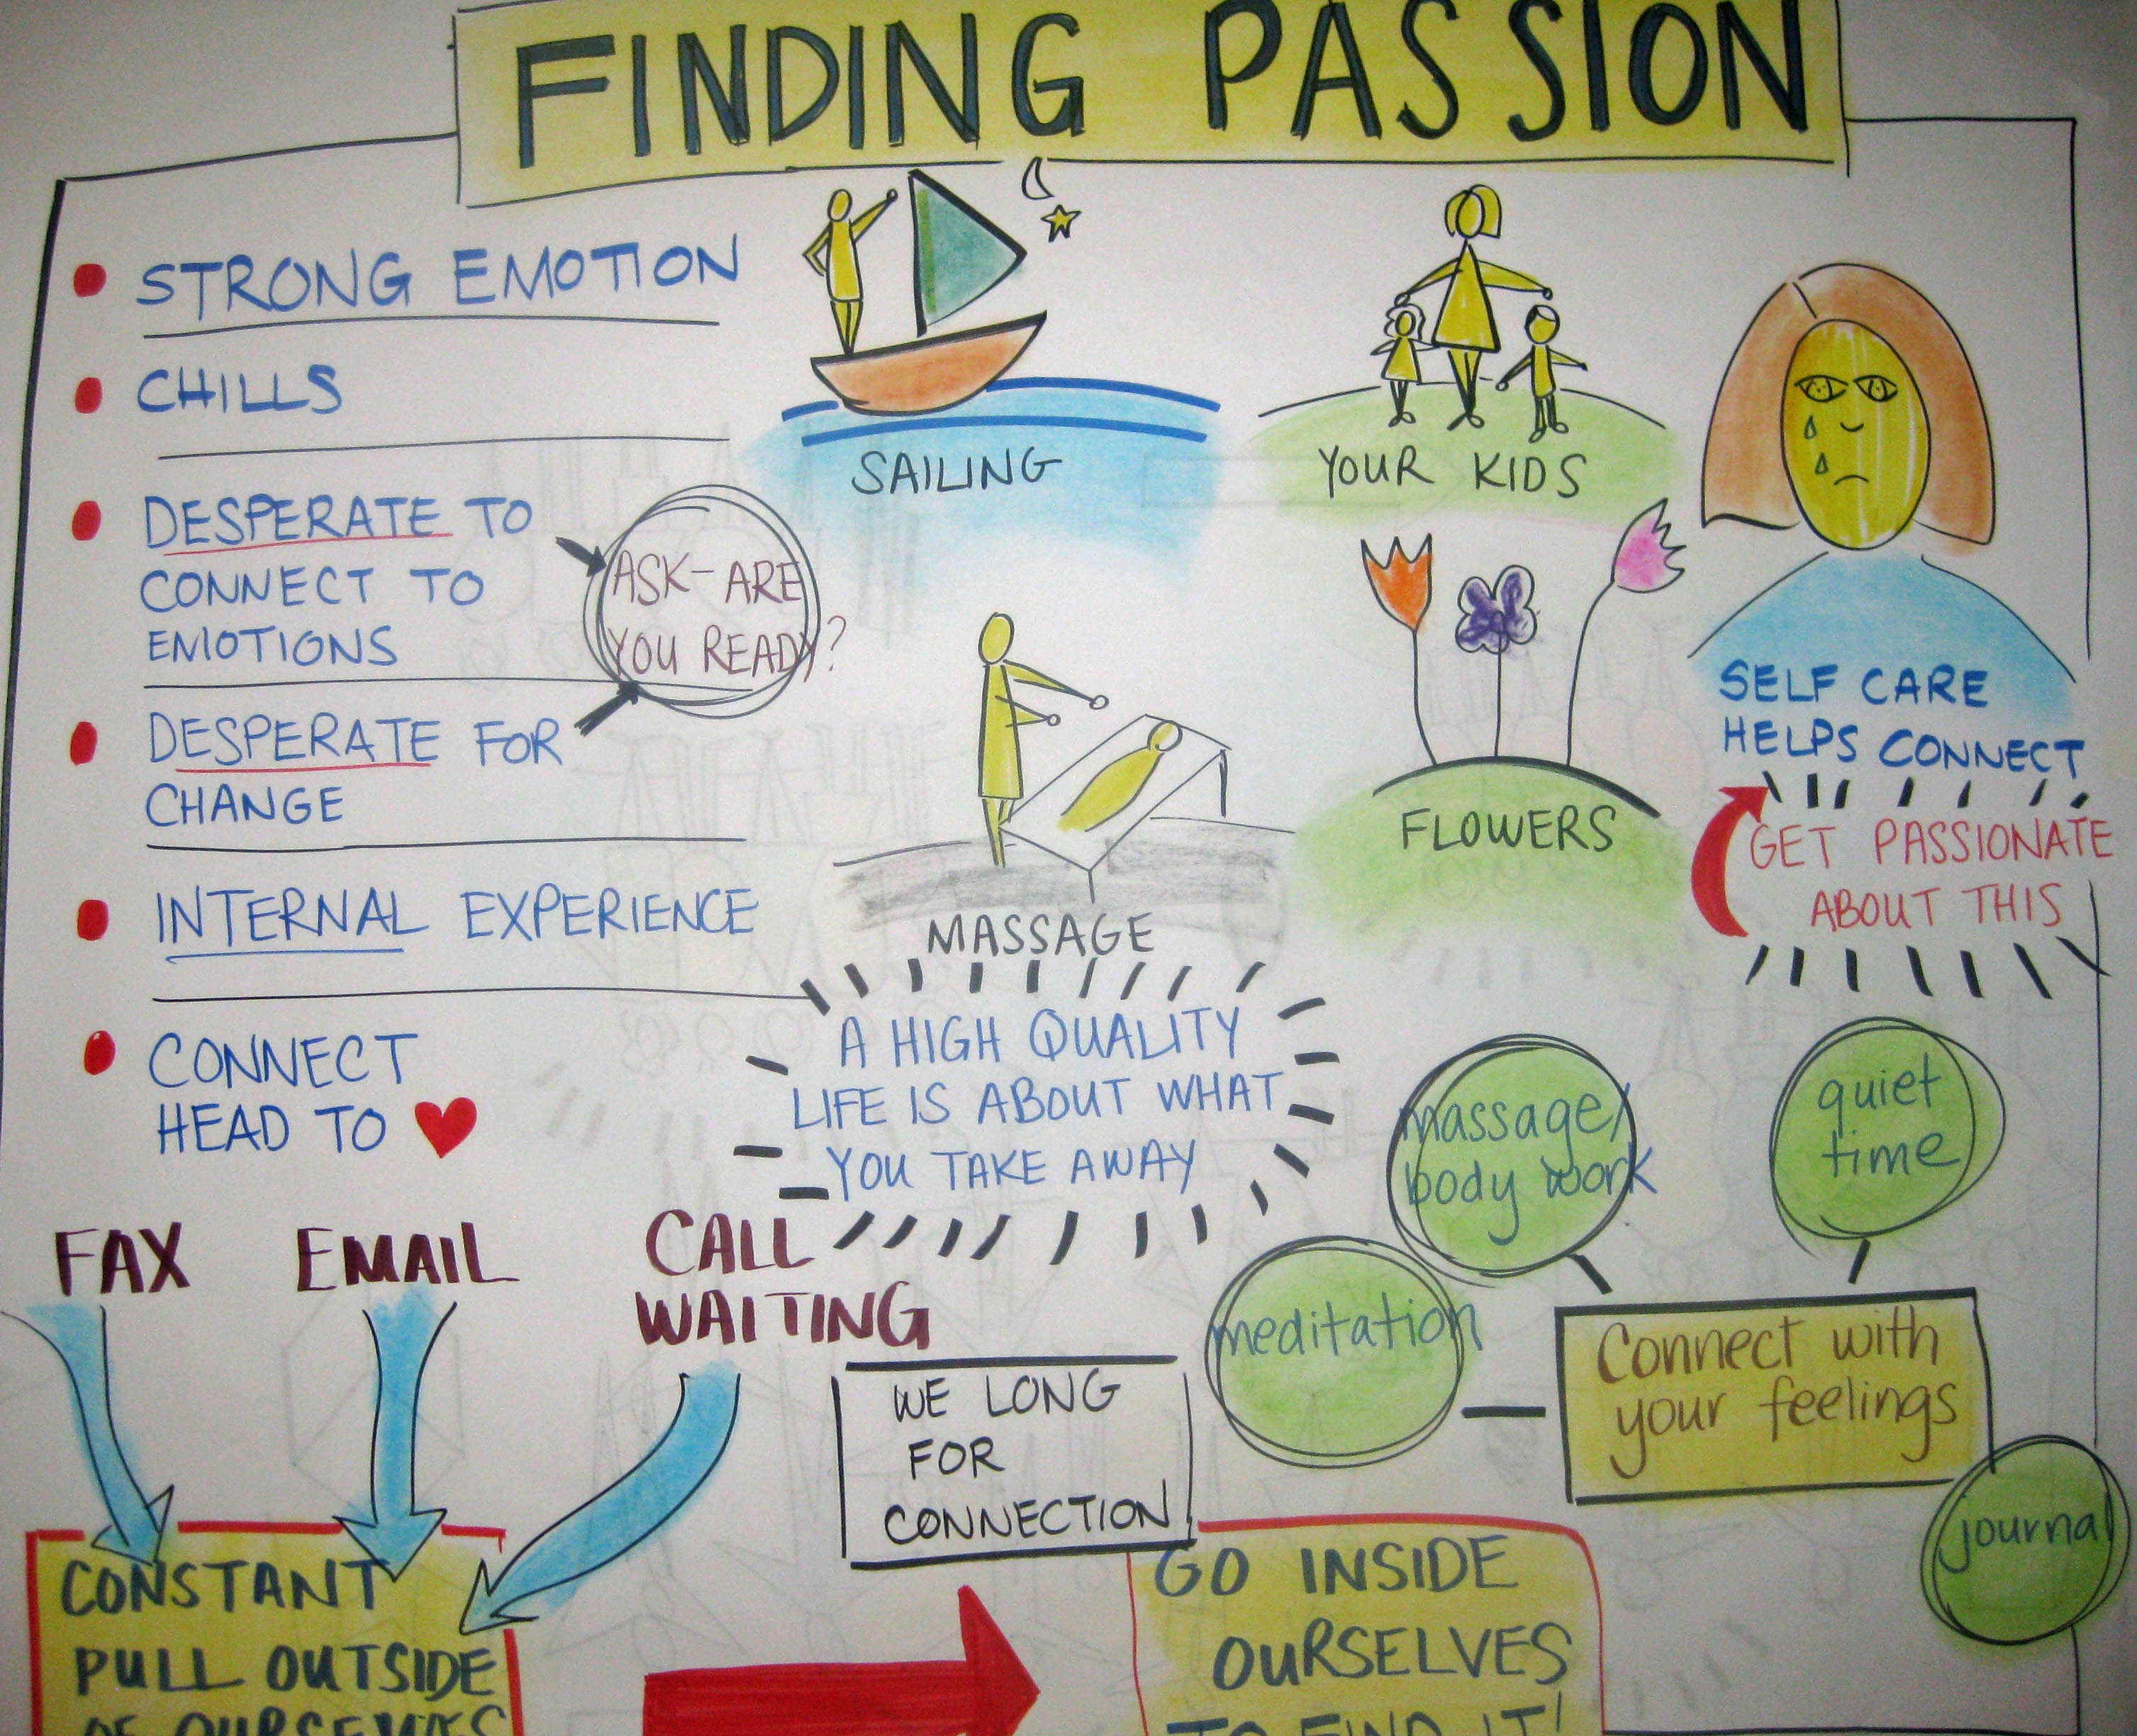 FINDING PASSION
STRONG EMOTION
CHILLS
DESPERATE TO
CONNECT TO
EMOTIONS
DESPERATE FOR
CHANGE
ASK - ARE
YOU READY?
INTERNAL EXPERIENCE
CONNECT
HEAD TO
SAILING
YOUR KIDS
MASSAGE
FLOWERS
SELF CARE
HELPS CONNECT
GET PASSIONATE
ABOUT THIS
A HIGH QUALITY
LIFE IS ABOUT WHAT
YOU TAKE AWAY
massage/
body work
quiet
time
meditation
Connect with
your feelings
journal
FAX
EMAIL
CALL
WAITING
CONSTANT
PULL OUTSIDE
OF OURSELVES
WE LONG
FOR
CONNECTION
GO INSIDE
OURSELVES
TO FIND IT!